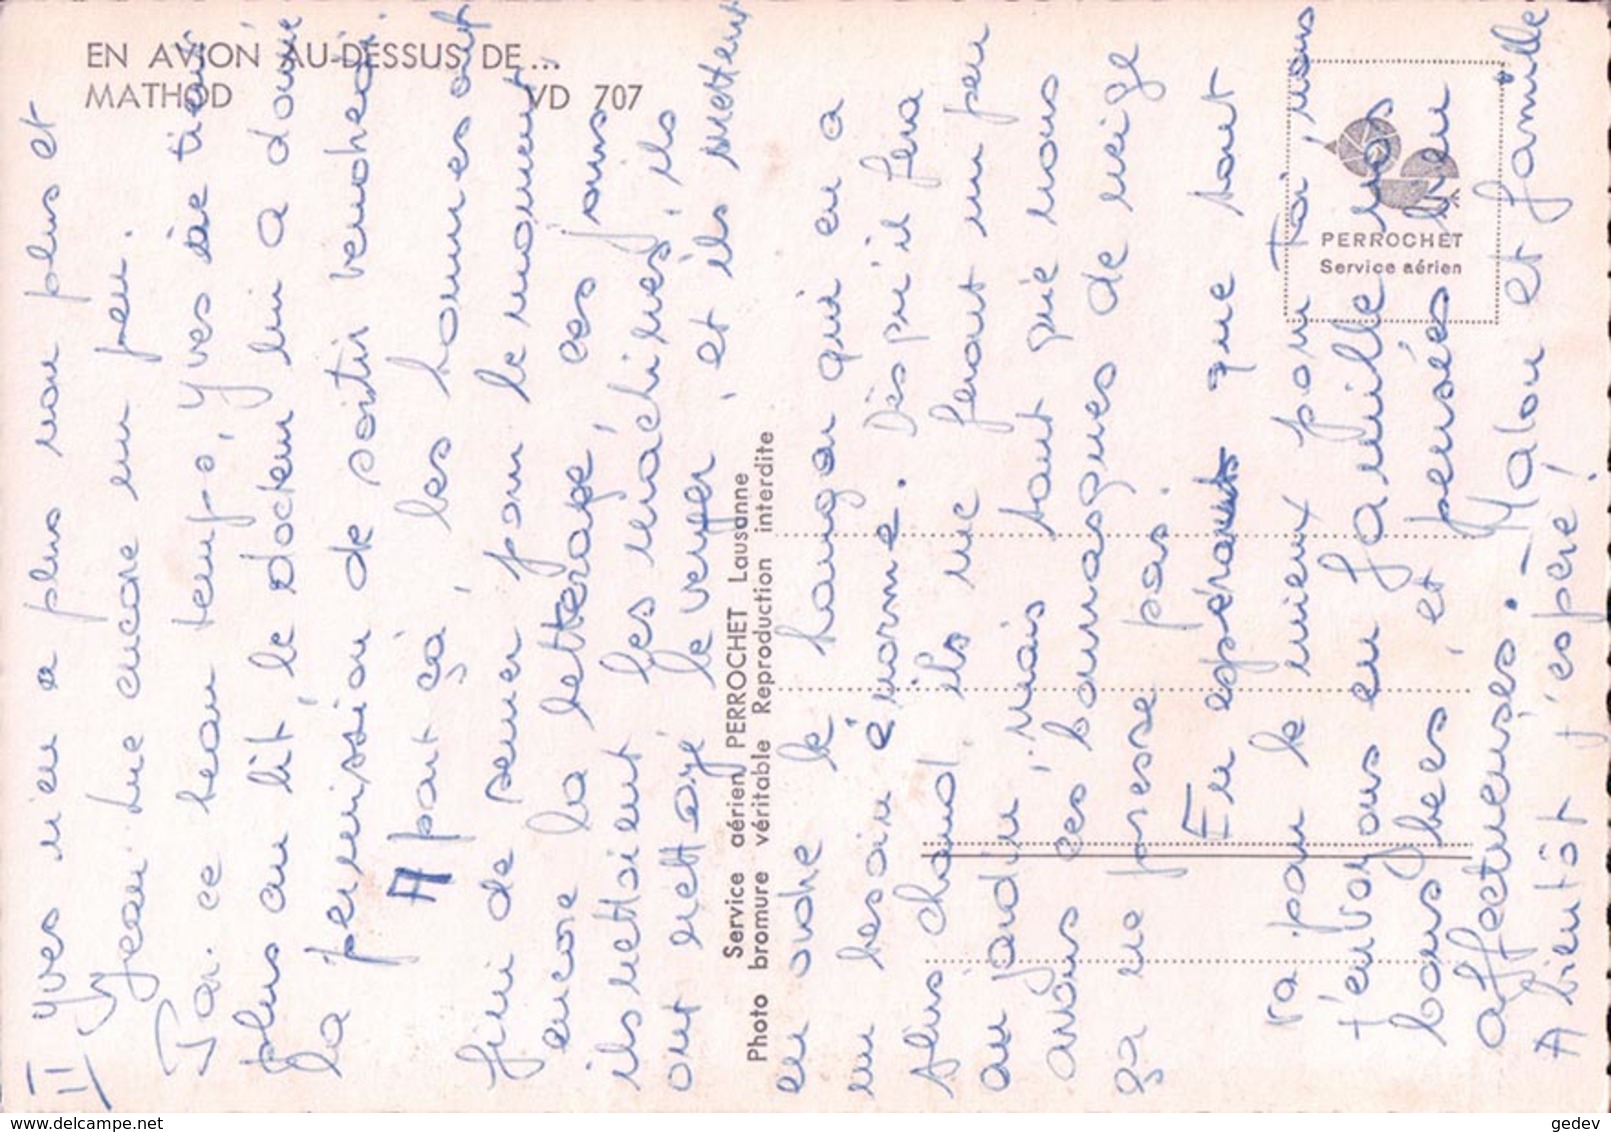 EN AVION AU-DESSUS DE...
MATHOD VD 707
II Yves n'en a plus non plus et
Jean tue encore un peu.
Par ce beau temps, Yves ne tient
plus au lit, le docteur lui a donné
la permission de sortir vendredi.
A part ça, les hommes ont
fini de semer pour le moment
encore la betterave, ces jours
ils nettoient les machines, ils
ont nettoyé le verger, et ils mettent
en ordre le hangar qui en a
un besoin énorme. Dès qu'il fera
plus chaud ils me feront un peu
au jardin, mais tant que nous
avons ces bourrasques de neige
ça ne presse pas.
En espérant que tout
va pour le mieux pour toi, nous
t'envoyons en famille nos
bons baisers, et pensées bien
affectueuses. Malou et famille
A bientôt j'espère!
Service aérien PERROCHET Lausanne
Photo bromure véritable Reproduction interdite
PERROCHET
Service aérien
https://www.delcampe.net
gedev